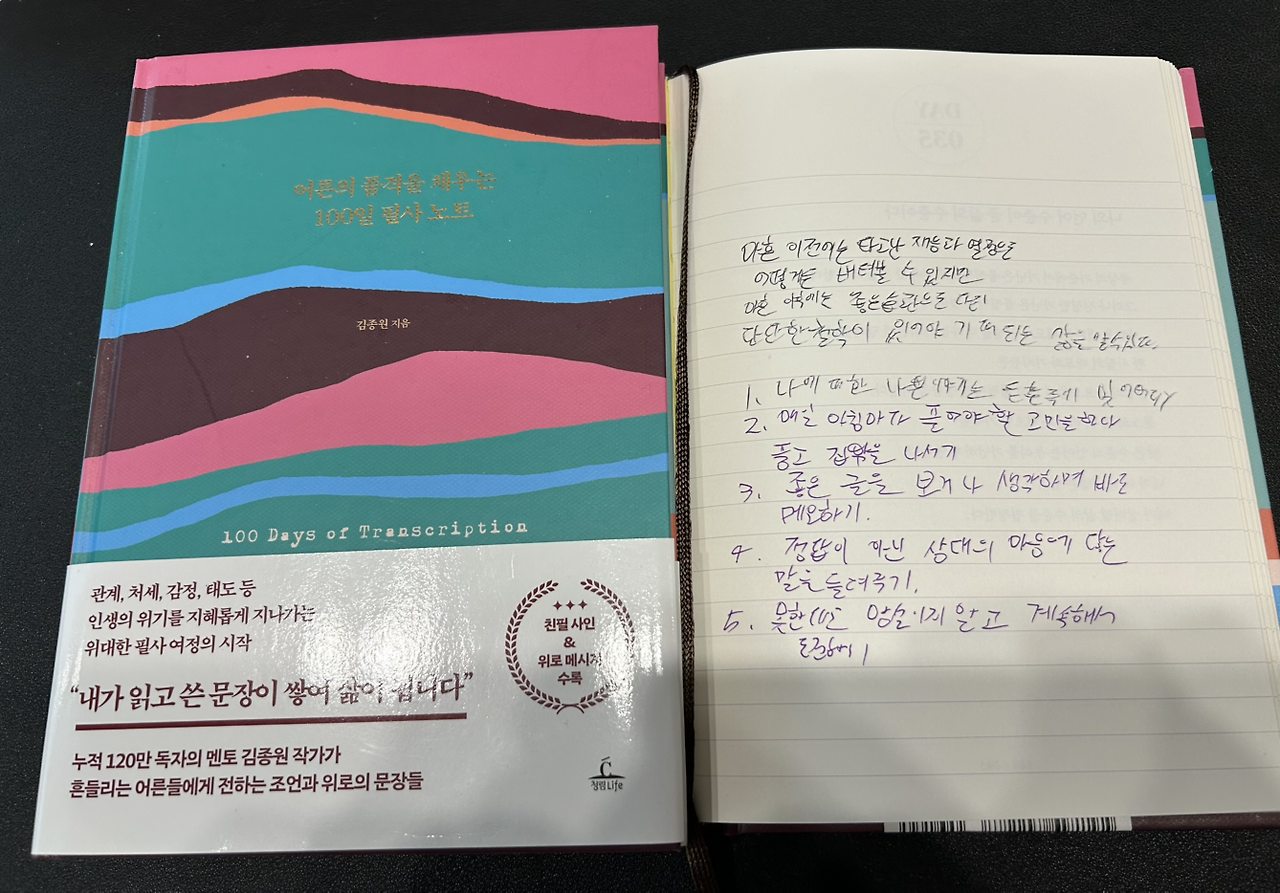 어른의 품격을 채우는
100일 필사 노트
김종원 지음
100 Days of Transcription
관계, 처세, 감정, 태도 등
인생의 위기를 지혜롭게 지나가는
위대한 필사 여정의 시작
“내가 읽고 쓴 문장이 쌓여 삶이 됩니다”
누적 120만 독자의 멘토 김종원 작가가
흔들리는 어른들에게 전하는 조언과 위로의 문장들
친필 사인
&
위로 메시지
수록
청림Life
DAY
035
마흔 이전에는 타고난 재능과 열정으로
어떻게든 버텨볼 수 있지만
마흔 이후에는 좋은습관으로 다진
단단한 철학이 있어야 기대되는 삶을 살 수 있다.
1. 나에 대한 나쁜 이야기는 한 귀로
2. 매일 아침마다 풀어야 할 고민을 하나
품고 집밖을 나서기
3. 좋은 글을 보거나 생각하며 바로
메모하기.
4. 정답이 아닌 상대의 마음에 닿는
말을 들려주기.
5. 못한다고 망설이지 않고 계속해서
도전하기